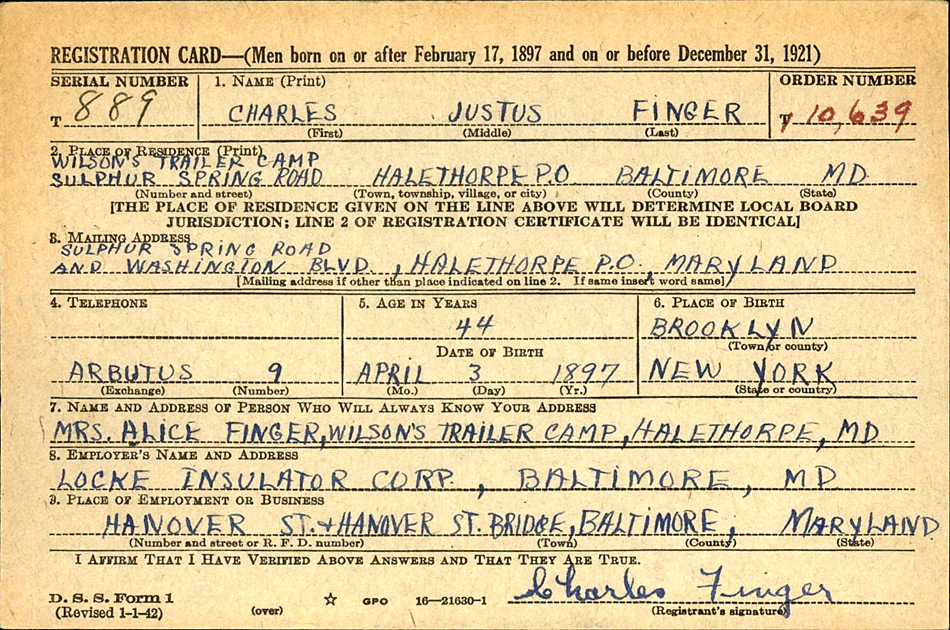 REGISTRATION CARD—(Men born on or after February 17, 1897 and on or before December 31, 1921)
SERIAL NUMBER 1. NAME (Print) ORDER NUMBER
T 889 CHARLES JUSTUS FINGER T 10,639
(First) (Middle) (Last)
2. PLACE OF RESIDENCE (Print)
WILSON'S TRAILER CAMP
SULPHUR SPRING ROAD HALETHORPE P.O BALTIMORE MD.
(Number and street) (Town, township, village, or city) (County) (State)
[THE PLACE OF RESIDENCE GIVEN ON THE LINE ABOVE WILL DETERMINE LOCAL BOARD
JURISDICTION; LINE 2 OF REGISTRATION CERTIFICATE WILL BE IDENTICAL]
3. MAILING ADDRESS
SULPHUR SPRING ROAD
AND WASHINGTON BLVD., HALETHORPE P.O., MARYLAND
[Mailing address if other than place indicated on line 2. If same insert word same]
4. TELEPHONE 5. AGE IN YEARS 6. PLACE OF BIRTH
44 BROOKLYN
DATE OF BIRTH (Town or county)
ARBUTUS 9 APRIL 3 1897 NEW YORK
(Exchange) (Number) (Mo.) (Day) (Yr.) (State or country)
7. NAME AND ADDRESS OF PERSON WHO WILL ALWAYS KNOW YOUR ADDRESS
MRS. ALICE FINGER, WILSON'S TRAILER CAMP, HALETHORPE, MD
8. EMPLOYER'S NAME AND ADDRESS
LOCKE INSULATOR CORP., BALTIMORE, MD
9. PLACE OF EMPLOYMENT OR BUSINESS
HANOVER ST. & HANOVER ST. BRIDGE, BALTIMORE, MARYLAND
(Number and street or R. F. D. number) (Town) (County) (State)
I AFFIRM THAT I HAVE VERIFIED ABOVE ANSWERS AND THAT THEY ARE TRUE.
D. S. S. Form 1
(Revised 1-1-42) (over) ☆ GPO 16—21630-1 Charles Finger
(Registrant's signature)